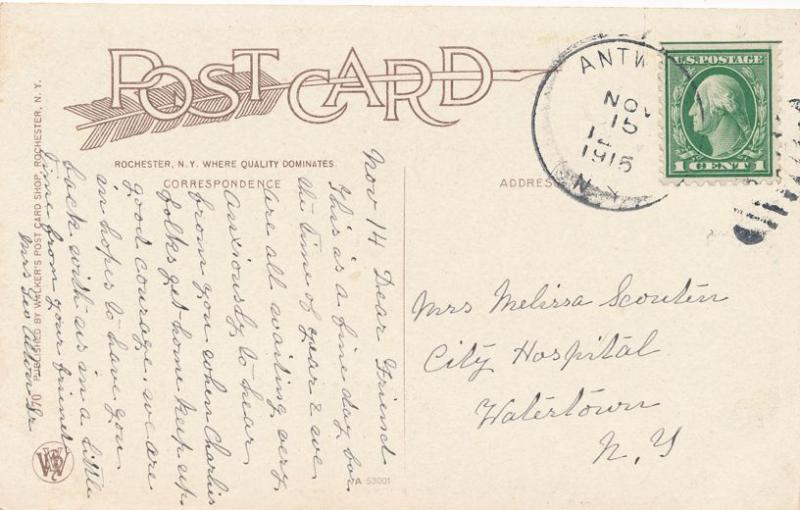 POST CARD
ROCHESTER, N.Y. WHERE QUALITY DOMINATES.
CORRESPONDENCE
ADDRESS
ANTW
NOV
15
1915
N.Y.
U.S. POSTAGE
1 CENT 1
Nov 14 Dear Friend
this is a fine day for
the time of year & we
are all waiting very
anxiously to hear
from you when Charlie
folks get home keep up
good courage. we are
in hopes to have you
back with us in a little
time from your friend
Mrs Geo
Mrs Melissa Scouten
City Hospital
Watertown
N, Y
070 PUBLISHED BY WALKER'S POST CARD SHOP, ROCHESTER, N. Y.
A-53001